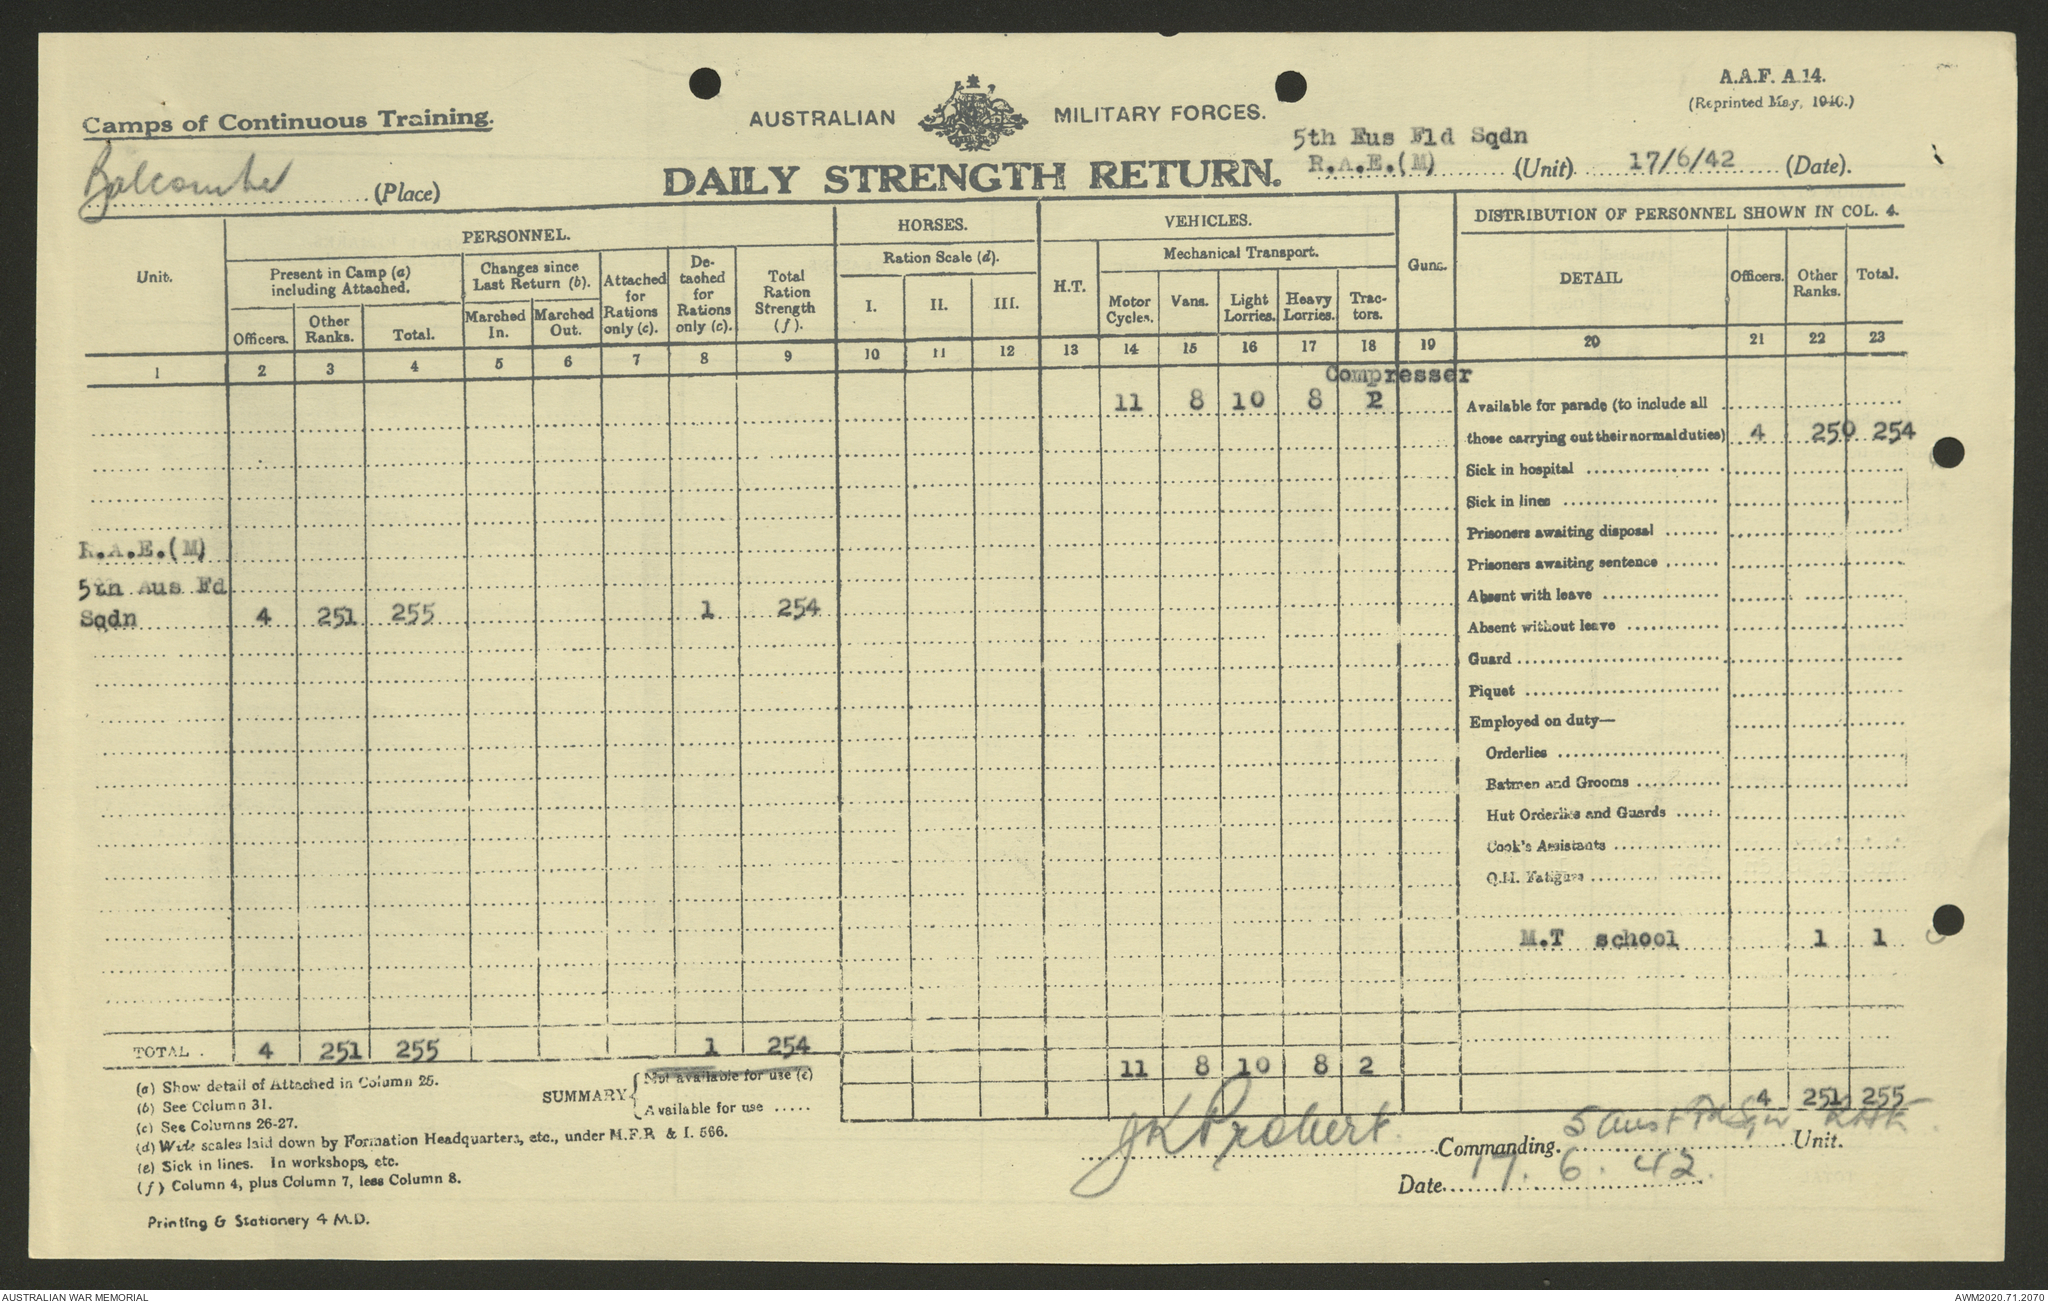 A.A.F. A.14.
(Reprinted May, 1940.)
Camps of Continuous Training.
AUSTRALIAN MILITARY FORCES.
Balcombe (Place)
DAILY STRENGTH RETURN.
5th Eus Fld Sqdn
R.A.E.(M) (Unit) 17/6/42 (Date).
Unit.
PERSONNEL.
Present in Camp (a) including Attached.
Officers.
Other Ranks.
Total.
Changes since Last Return (b).
Marched In.
Marched Out.
Attached for Rations only (c).
De-tached for Rations only (c).
Total Ration Strength (f).
HORSES.
Ration Scale (d).
I. II. III.
VEHICLES.
H.T.
Mechanical Transport.
Motor Cycles.
Vans.
Light Lorries.
Heavy Lorries.
Trac-tors.
Guns.
DISTRIBUTION OF PERSONNEL SHOWN IN COL. 4.
DETAIL
Officers.
Other Ranks.
Total.
1 2 3 4 5 6 7 8 9 10 11 12 13 14 15 16 17 18 19 20 21 22 23
Compresser
11 8 10 8 2
Available for parade (to include all
those carrying out their normal duties) 4 250 254
Sick in hospital
Sick in lines
Prisoners awaiting disposal
R.A.E.(M)
Prisoners awaiting sentence
5th Aus Fd
Absent with leave
Sqdn 4 251 255 1 254
Absent without leave
Guard
Piquet
Employed on duty—
Orderlies
Batmen and Grooms
Hut Orderlies and Guards
Cook's Assistants
Q.M. Fatigues
M.T school 1 1
TOTAL. 4 251 255 1 254
11 8 10 8 2
4 251 255
SUMMARY
Not available for use (e)
Available for use
(a) Show detail of Attached in Column 25.
(b) See Column 31.
(c) See Columns 26-27.
(d) Wide scales laid down by Formation Headquarters, etc., under M.F.R. & I. 566.
(e) Sick in lines. In workshops, etc.
(f) Column 4, plus Column 7, less Column 8.
JK Probert Commanding. 5 Aust Fd Sqn RAE Unit.
Date 17.6.42.
Printing & Stationery 4 M.D.
AUSTRALIAN WAR MEMORIAL
AWM2020.71.2070